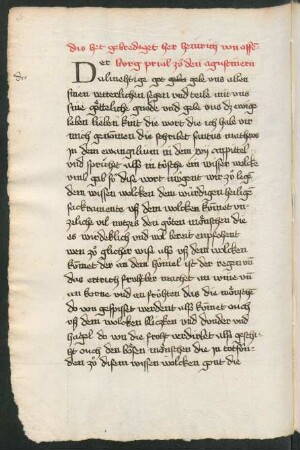 dis het gebrediget her heinrich von offe
burg prial zů den agustinern
Der almehtige got geb uns allen
sinen vetterlichen segen und teile mit uns
sine götteliche gnade und gebe uns dz ewige
leben lieben kint die wort die ich habe vür
mich genommen die schribet sanctus matheus
in dem ewangelium an dem xvij cappittel
und sprichet also in tösche ein wisser wolcke
und also dise wort mügent wir zů legen
dem wissen wolcken dem würdigen heiligen
sackramente uß dem wolcken kömet un-
zeliche vil nutzes den gůten mönschen die
es wirdeklich und wol bereit enpfohent
wen zů glicher wise alß uß dem wolcken
kömet der an dem himel ist der regen von
das ertrich fruhtber machet an wine und
an korne und an frühten das die mönschen
do von gespiset werdent alß kömet ouch
uß dem wolcken blicken und donder und
hagel do von die fruht verdirbet alß geschi-
ht ouch den bösen mönschen die in totsün-
den zů disem wissen wolcken gont die